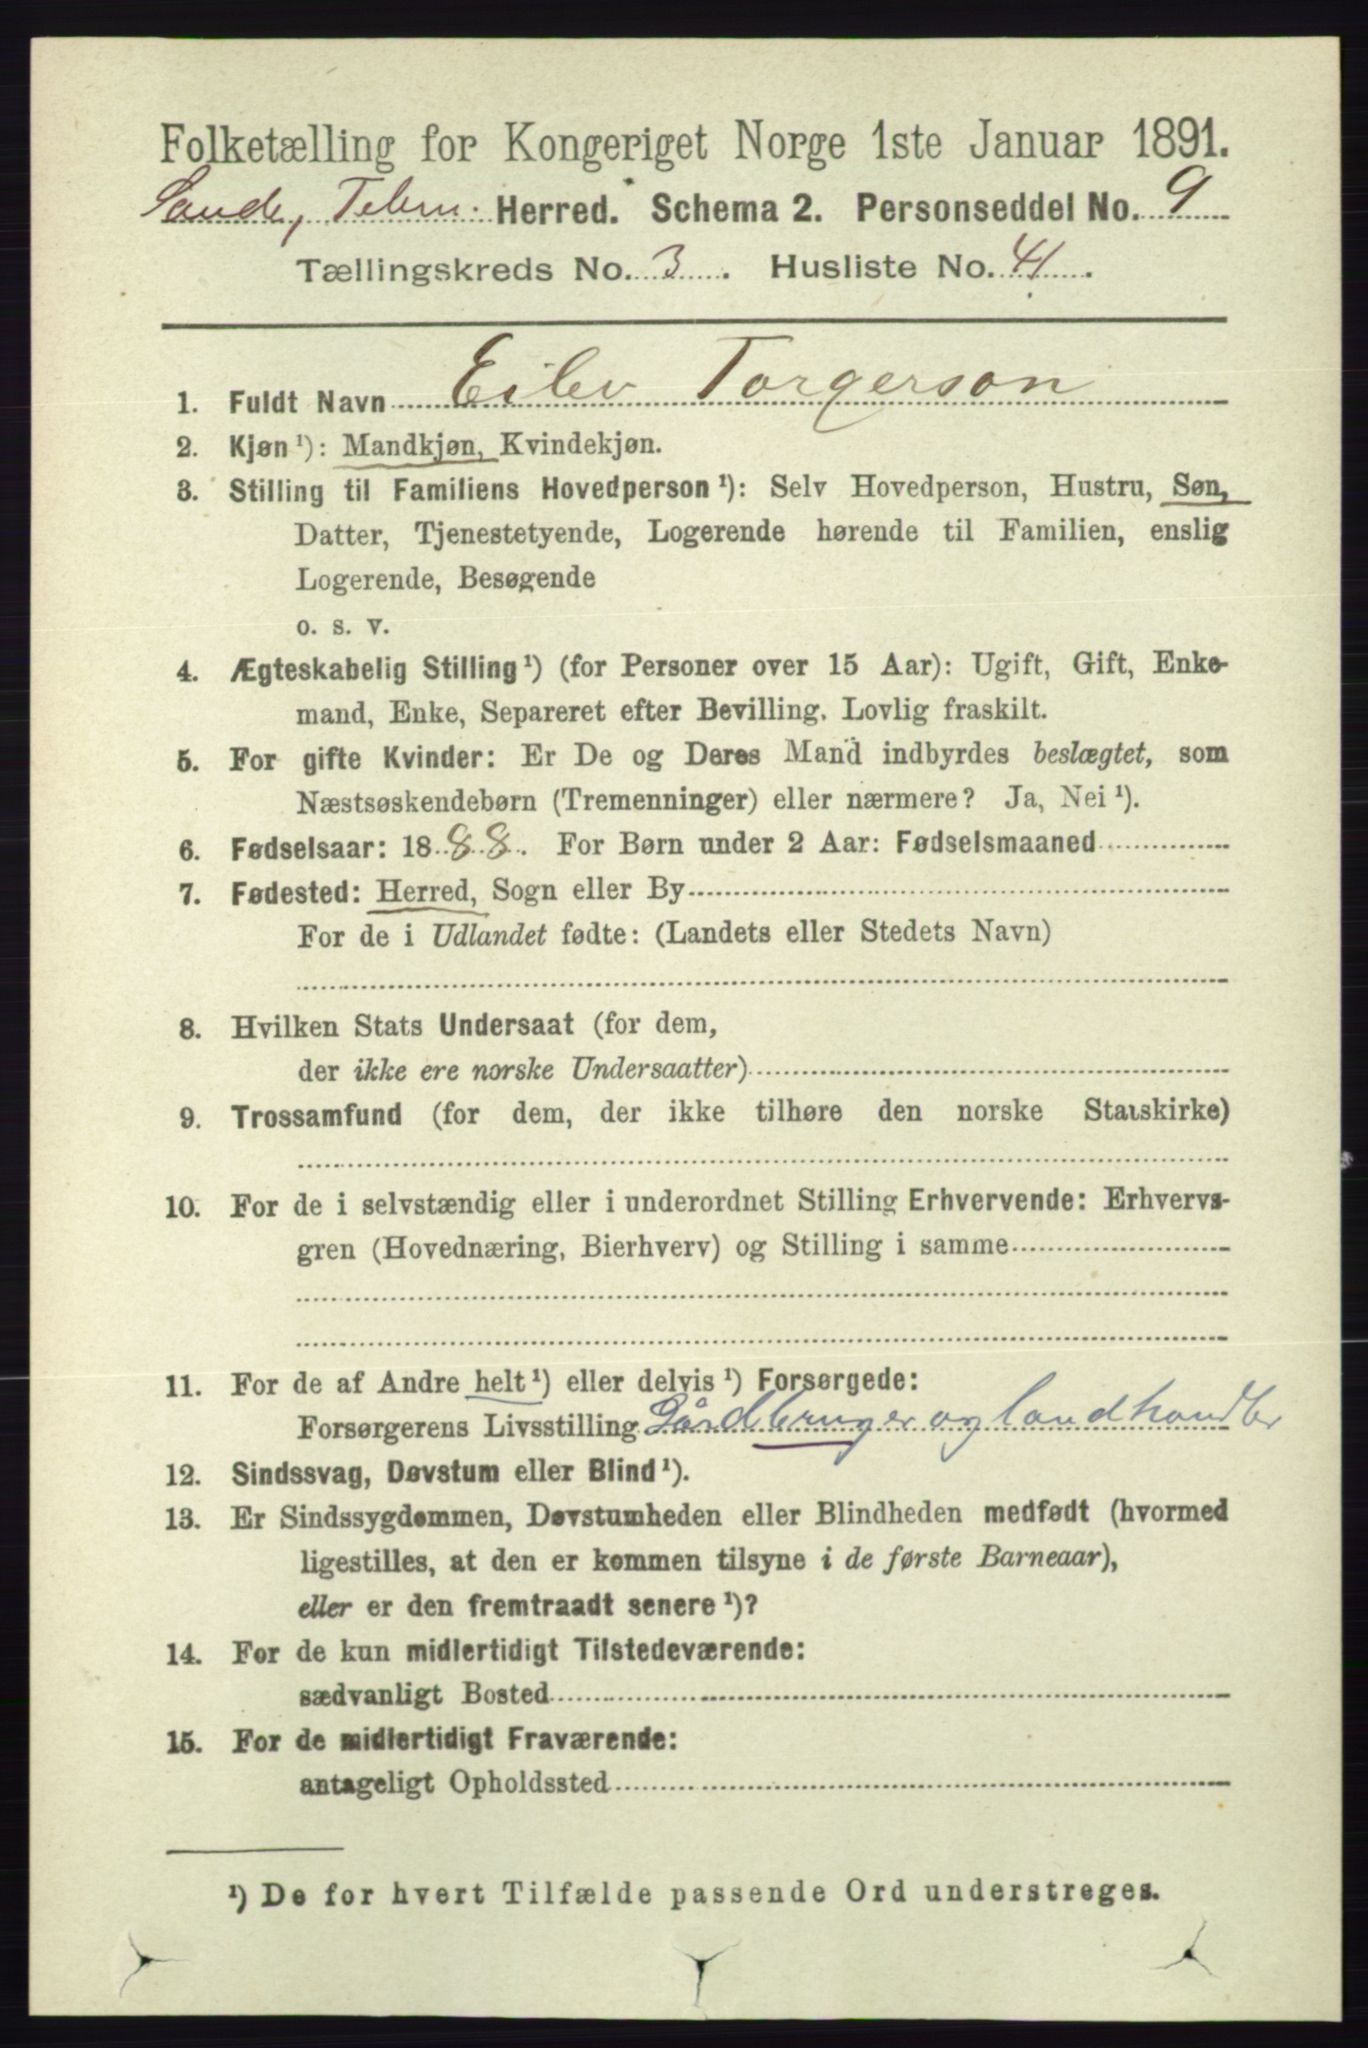 Folketælling for Kongeriget Norge 1ste Januar 1891.
Saude, Telem. Herred. Schema 2. Personseddel No. 9
Tællingskreds No. 3. Husliste No. 41.
1. Fuldt Navn Eilev Torgerson
2. Kjøn¹): Mandkjøn, Kvindekjøn.
3. Stilling til Familiens Hovedperson¹): Selv Hovedperson, Hustru, Søn,
Datter, Tjenestetyende, Logerende hørende til Familien, enslig
Logerende, Besøgende
o. s. v.
4. Ægteskabelig Stilling¹) (for Personer over 15 Aar): Ugift, Gift, Enke-
mand, Enke, Separeret efter Bevilling. Lovlig fraskilt.
5. For gifte Kvinder: Er De og Deres Mand indbyrdes beslægtet, som
Næstsøskendebørn (Tremenninger) eller nærmere? Ja, Nei¹).
6. Fødselsaar: 1888. For Børn under 2 Aar: Fødselsmaaned
7. Fødested: Herred, Sogn eller By
For de i Udlandet fødte: (Landets eller Stedets Navn)
8. Hvilken Stats Undersaat (for dem,
der ikke ere norske Undersaatter)
9. Trossamfund (for dem, der ikke tilhøre den norske Statskirke)
10. For de i selvstændig eller i underordnet Stilling Erhvervende: Erhvervs-
gren (Hovednæring, Bierhverv) og Stilling i samme
11. For de af Andre helt¹) eller delvis¹) Forsørgede:
Forsørgerens Livsstilling Gårdbruger og landhandler
12. Sindssvag, Døvstum eller Blind¹).
13. Er Sindssygdommen, Døvstumheden eller Blindheden medfødt (hvormed
ligestilles, at den er kommen tilsyne i de første Barneaar),
eller er den fremtraadt senere¹)?
14. For de kun midlertidigt Tilstedeværende:
sædvanligt Bosted
15. For de midlertidigt Fraværende:
antageligt Opholdssted
¹) De for hvert Tilfælde passende Ord understreges.